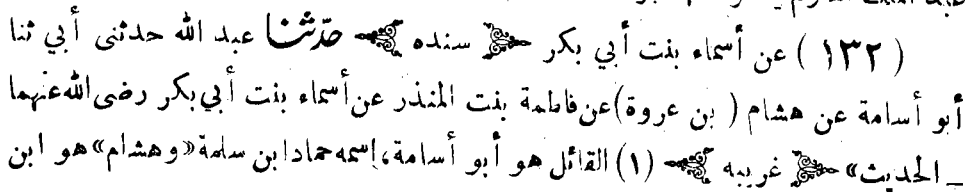 (١٣٢) عن أسماء بنت أبي بكر سنده حدّثنا عبد الله حدثنى أبي ثنا
أبو أسامة عن هشام (بن عروة) عن فاطمة بنت المنذر عن أسماء بنت أبي بكر رضى الله عنهما
_ الحديث» غريبه (١) القائل هو أبو أسامة، إسمه حمادا بن سلمة «وهشام» هو ابن